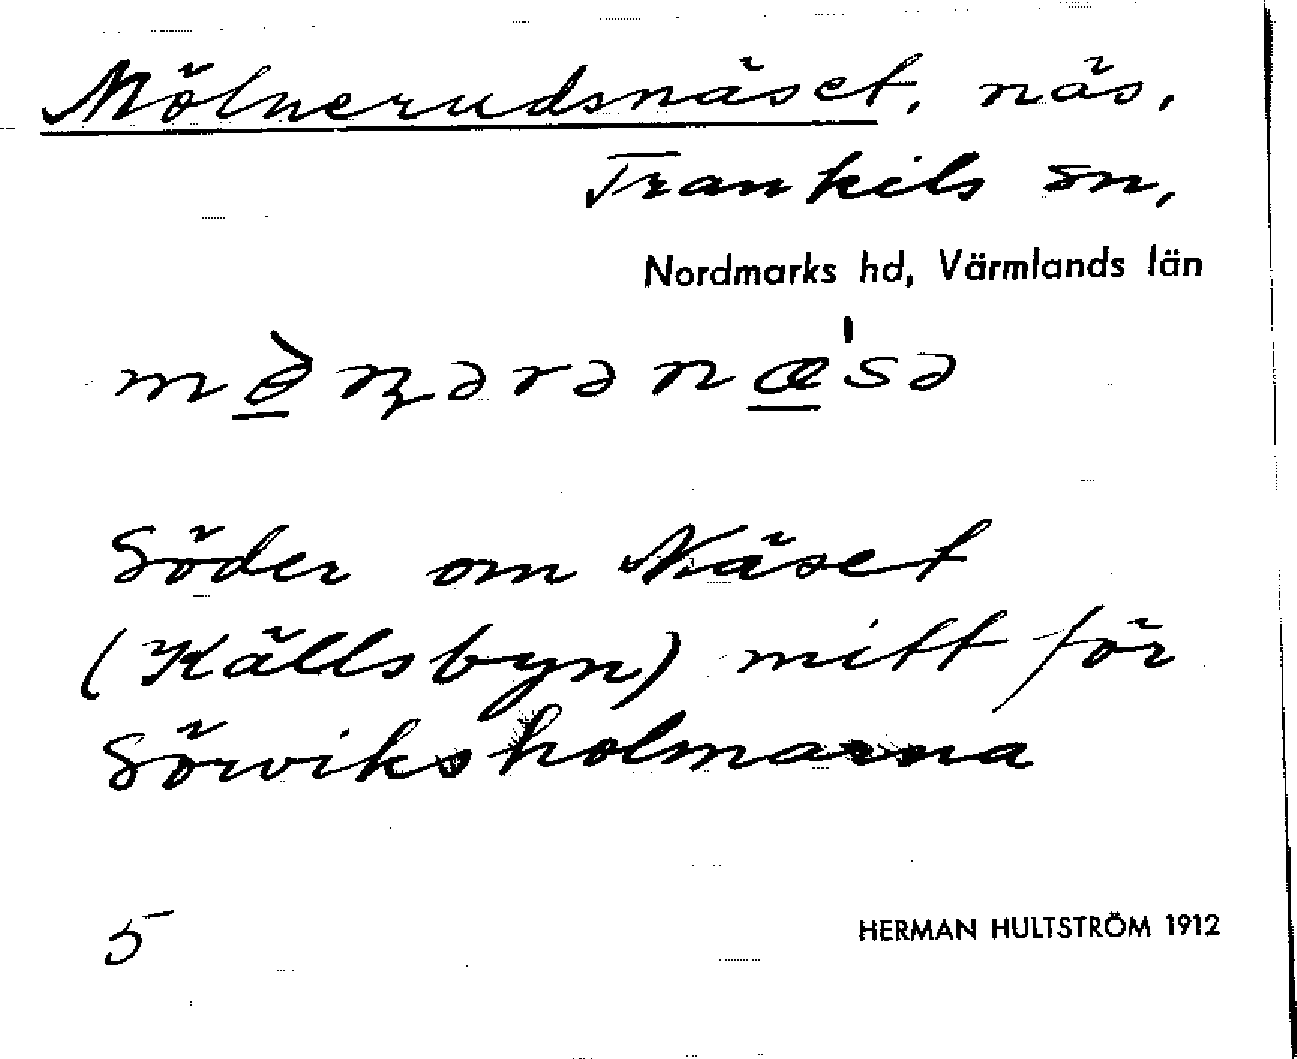 Mölnerudsnäset, näs,
Trankils sn,
Nordmarks hd, Värmlands län
Söder om Näset
(Källsbyn) mitt för
Sörviksholmarna
5 HERMAN HULTSTRÖM 1912